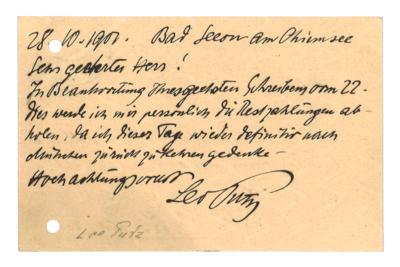 28-10-1901. Bad Seeon am Chiemsee
Sehr geehrter Herr!
In Beantwortung Ihres geehrten Schreibens vom 22-
dies werde ich mir persönlich die Restzahlungen ab-
holen, da ich dieser Tage wieder definitiv nach
München zurückzukehren gedenke -
Hochachtungsvollst
Leo Putz
Leo Putz